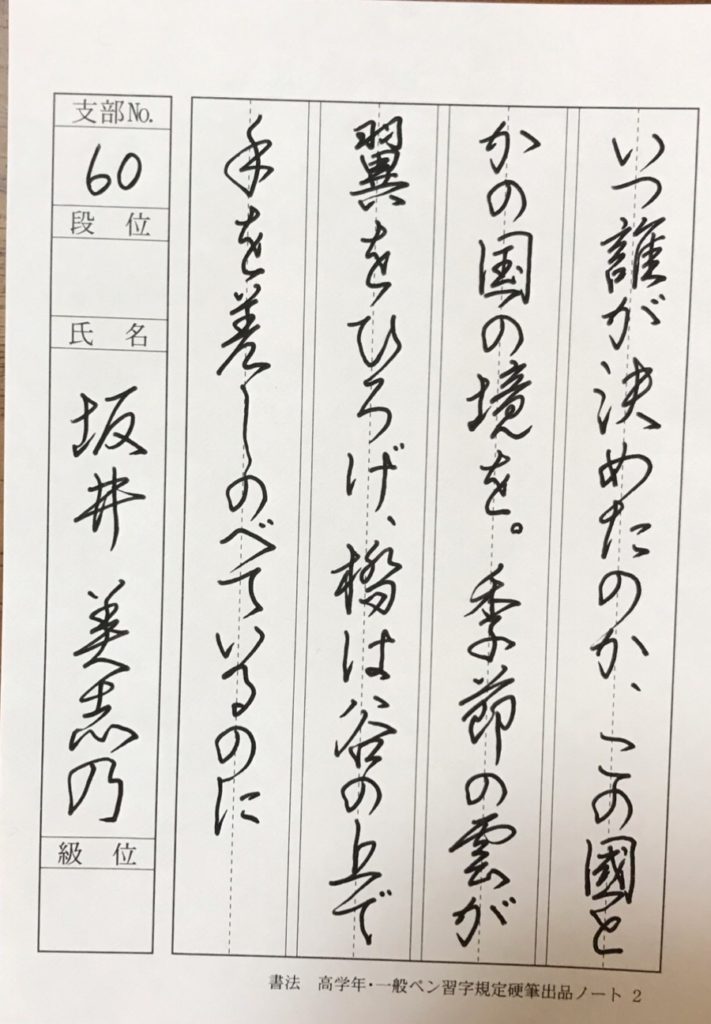 いつ誰が決めたのか、この國と
かの国の境を。季節の雲が
翼をひろげ、橋は谷の上で
手を差しのべているのに
支部No.
60
段位
氏名
坂井 美志乃
級位
書法 高学年・一般ペン習字規定硬筆出品ノート 2